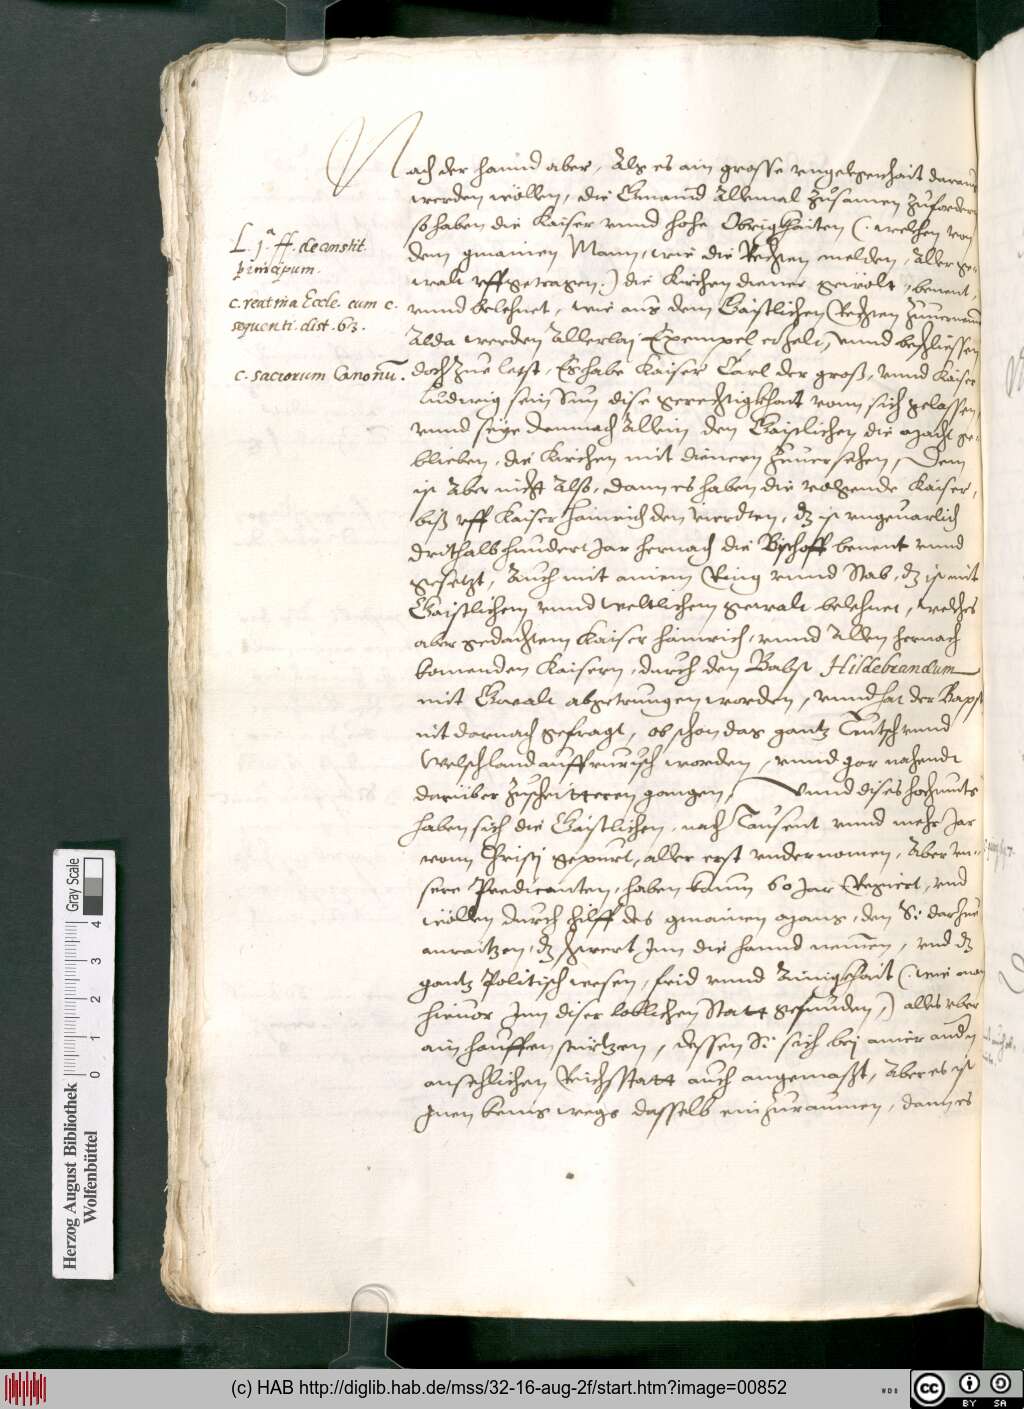 Nach der hannd aber, Als es ain grosse ungelegenhait daraus
werden wöllen, die Gmaind Allemal zusamen zufordern
so haben die Kaiser unnd hohe Obrigkhaiten (: welchen von
dem gmainen Mann, wie die Rechten melden, Aller ge-
L. 1.ª ff. de constit.
principum.
walt uffgetragen:) die Kirchen diener gewölt, benent,
c. reatina Eccle. cum c.
sequenti. dist. 63.
unnd belehnet, wie aus dem Gaistlichen Rechten
Alda werden Allerlaj Exempel erzelt, unnd beschliessen
c. sacrorum Canonū.
doch zue letst, Es habe Kaiser Carl der groß, unnd Kaiser
Ludwig sein Sun dise gerechtigkhait vonn sich gelassen,
unnd seije demnach Allein den Gaistlichen die macht ge-
blieben, die Kirchen mit dienern zuversehen, Dem
ist Aber nicht Also, dann es haben die volgende Kaiser,
biß uff Kaiser Hainrich den vierdten, dz ist ungevarlich
drithalb hundert Jar hernach die Bischoff benent unnd
gesetzt, Auch mit ainem Ring unnd Stab, dz ist mit
Gaistlichem unnd weltlichem gewalt belehnet, welches
aber gedachtem Kaiser Hainrich, unnd Allen hernach
komenden Kaisern, durch den Babst Hildebrandum
mit Gwalt abgetrungen worden, unnd hat der Bapst
nit darnach gefragt, ob schon das gantz Teutsch unnd
Welschland auffrurisch worden, unnd gar nahendt
darüber zuscheitteren gangen, Unnd dises hochmuts
haben sich die Gaistlichen, nach Tausent unnd mehr Jar
vonn Christj gepurt, aller erst undernomen, Aber un-
sere Predicanten, haben kaum 60 Jar Regiert, und
wöllen durch hilff des gmainen mans, den Si darzue
anraitzen, dz schwert Inn die hannd nemen, und dz
gantz Politisch wesen, frid unnd Ainigkhait (: wie man
hievor Inn diser loblichen Statt gefunden,) alles uber
ain hauffen stürtzen, dessen Si sich bej ainer andn
ansehlichen Reichsstatt auch angemaßt, Aber es ist
Inen keins wegs dasselb einzuraumen, dann es
Herzog August Bibliothek
Wolfenbüttel
0 1 2 3 4
Gray Scale
(c) HAB http://diglib.hab.de/mss/32-16-aug-2f/start.htm?image=00852
WDB
cc BY SA